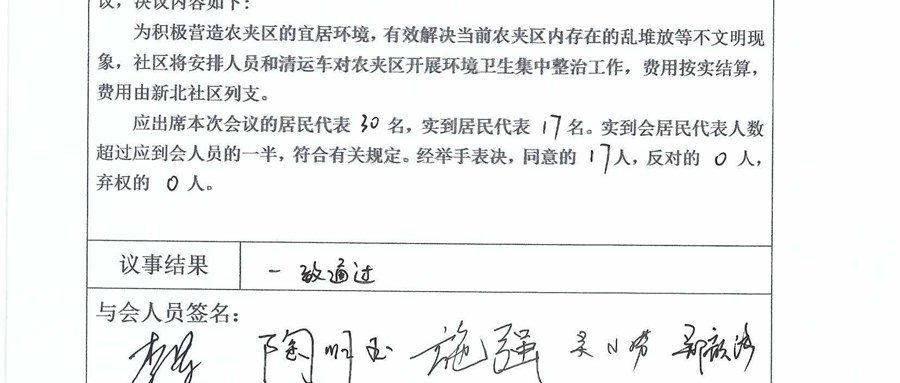 议，决议内容如下：
为积极营造农夹区的宜居环境，有效解决当前农夹区内存在的乱堆放等不文明现
象，社区将安排人员和清运车对农夹区开展环境卫生集中整治工作，费用按实结算，
费用由新北社区列支。
应出席本次会议的居民代表 30 名，实到居民代表 17 名。实到会居民代表人数
超过应到会人员的一半，符合有关规定。经举手表决，同意的 17 人，反对的 0 人，
弃权的 0 人。
议事结果 一致通过
与会人员签名：
陶明玉 施强